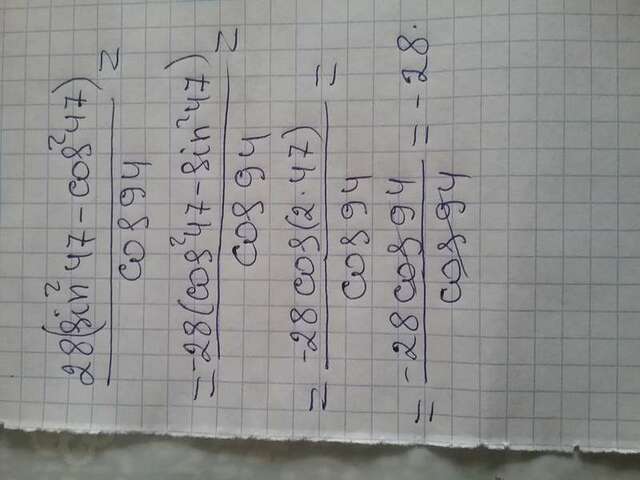 28(sin²47 - cos²47)
cos 94 =
= -28(cos²47 - sin²47)
cos 94 =
= -28 cos(2·47)
cos 94 =
= -28 cos 94
cos 94 = -28.